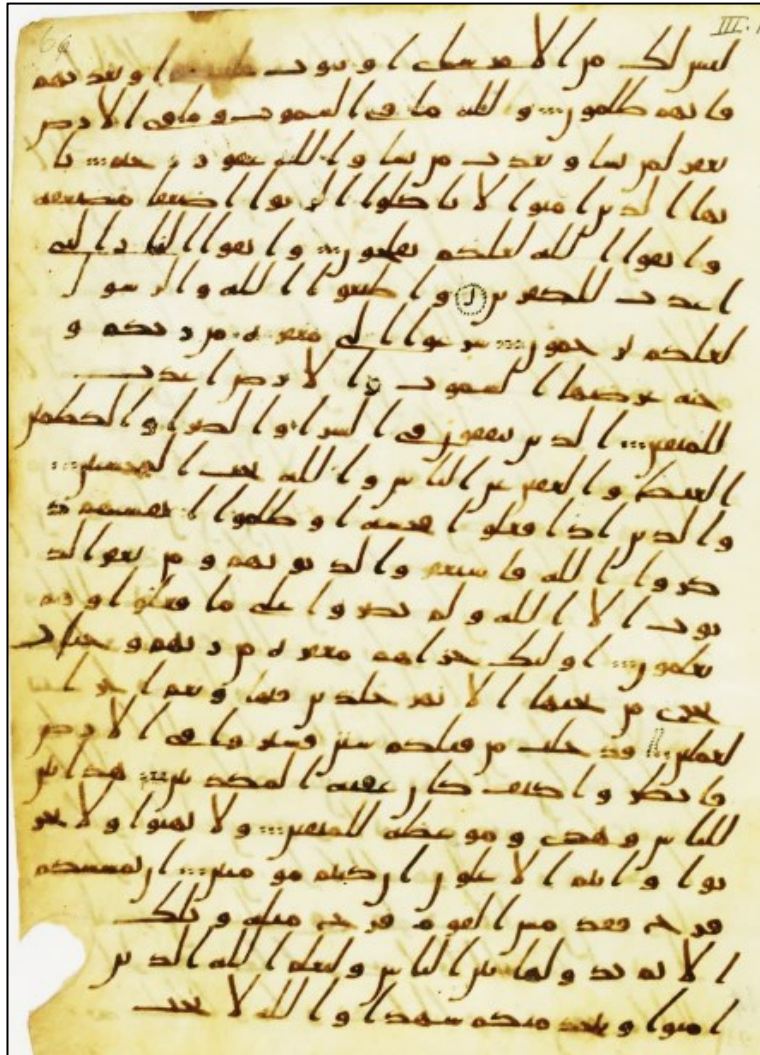 ليس لك من الامر شى او يتوب عليهم او يعذبهم
فانهم ظلمون ولله ما فى السموت وما فى الارض
يغفر لمن يشا ويعذب من يشا والله غفور رحيم يا
يها الذين امنوا لا تاكلوا الربوا اضعفا مضعفه
واتقوا الله لعلكم تفلحون واتقوا النار التى
اعدت للكفرين واطيعوا الله والرسول
لعلكم ترحمون سرعوا الى مغفره من ربكم و
جنه عرضها السموت و الارض اعدت
للمتقين الذين ينفقون فى السرا والضرا والكظمين
الغيظ والعفين عن الناس والله يحب المحسنين
والذين اذا فعلوا فحشه او ظلموا انفسهم ذ
كروا الله فاستغفروا لذنوبهم ومن يغفر الذ
نوب الا الله ولم يصروا على ما فعلوا وهم
يعلمون اوليك جزاهم مغفره من ربهم وجنت
تجرى من تحتها الانهر خلدين فيها ونعم اجر ا
لعملين قد خلت من قبلكم سنن فسيروا فى الارض
فانظروا كيف كان عقبه المكذبين هذا بين
للناس وهدى وموعظه للمتقين ولا تهنوا ولا تحز
نوا وانتم الاعلون ان كنتم مومنين ان يمسسكم
قرح فقد مس القوم قرح مثله وتلك
الايم ندولها بين الناس وليعلم الله الذين
امنوا ويتخذ منكم شهدا والله لا يحب